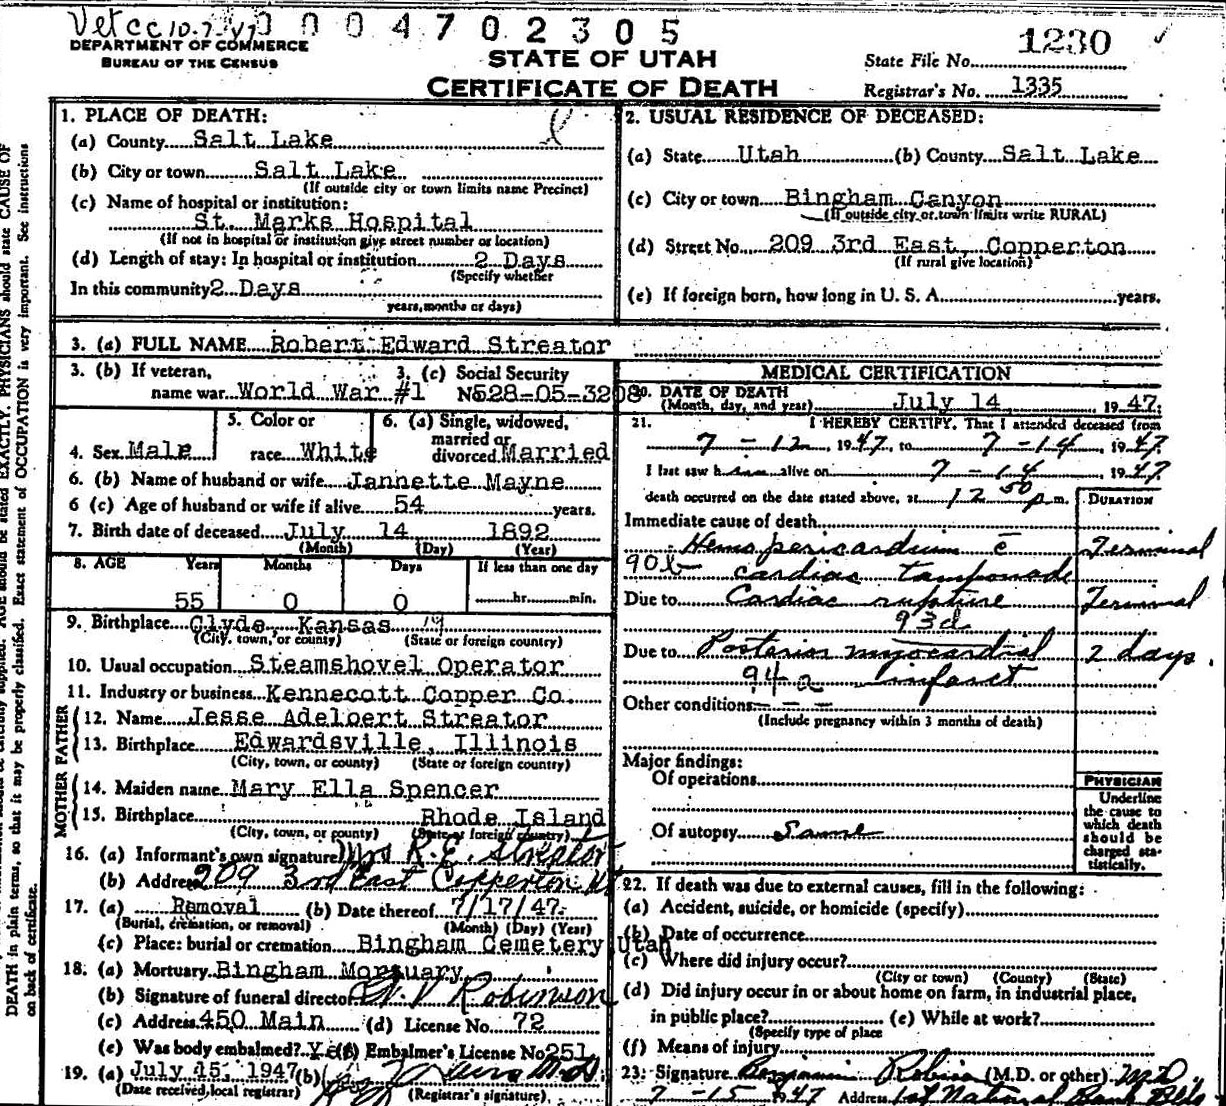 Vet cc 10.7.47 0 0 0 4 7 0 2 3 0 5
DEPARTMENT OF COMMERCE
BUREAU OF THE CENSUS
STATE OF UTAH
CERTIFICATE OF DEATH
State File No. 1230
Registrar's No. 1335
1. PLACE OF DEATH:
(a) County Salt Lake
(b) City or town Salt Lake
(If outside city or town limits name Precinct)
(c) Name of hospital or institution:
St. Marks Hospital
(If not in hospital or institution give street number or location)
(d) Length of stay: In hospital or institution 2 Days
(Specify whether
In this community 2 Days
years, months or days)
2. USUAL RESIDENCE OF DECEASED:
(a) State Utah (b) County Salt Lake
(c) City or town Bingham Canyon
(If outside city or town limits write RURAL)
(d) Street No. 209 3rd East, Copperton
(If rural give location)
(e) If foreign born, how long in U. S. A. years.
3. (a) FULL NAME Robert Edward Streator
3. (b) If veteran, 3. (c) Social Security
name war World War #1 No 528-05-3208
4. Sex Male
5. Color or
race White
6. (a) Single, widowed,
married or
divorced Married
6. (b) Name of husband or wife Jannette Mayne
6 (c) Age of husband or wife if alive 54 years.
7. Birth date of deceased July 14 1892
(Month) (Day) (Year)
8. AGE Years Months Days If less than one day
55 0 0 hr. min.
9. Birthplace Clyde, Kansas
(City, town, or county) (State or foreign country)
10. Usual occupation Steamshovel Operator
11. Industry or business Kennecott Copper Co.
FATHER
12. Name Jesse Adelbert Streator
13. Birthplace Edwardsville, Illinois
(City, town, or county) (State or foreign country)
MOTHER
14. Maiden name Mary Ella Spencer
15. Birthplace Rhode Island
(City, town, or county) (State or foreign country)
16. (a) Informant's own signature Mrs R. E. Streator
(b) Address 209 3rd East Copperton Ut
17. (a) Removal (b) Date thereof 7/17/47.
(Burial, cremation, or removal) (Month) (Day) (Year)
(c) Place: burial or cremation Bingham Cemetery, Utah
18. (a) Mortuary Bingham Mortuary
(b) Signature of funeral director Robinson
(c) Address 450 Main (d) License No. 72
(e) Was body embalmed? Yes (f) Embalmer's License No 251
19. (a) July 15, 1947 (b) M.D.
(Date received local registrar) (Registrar's signature)
MEDICAL CERTIFICATION
20. DATE OF DEATH
(Month, day, and year) July 14 1947.
21. I HEREBY CERTIFY, That I attended deceased from
7-12, 1947, to 7-14, 1947.
I last saw him alive on 7-14 1947
death occurred on the date stated above, at 12 50 p m.
DURATION
Immediate cause of death
Hemopericardium c̄ Terminal
90b cardiac tamponade
Due to Cardiac rupture Terminal
93d
Due to Posterior myocardial 2 days.
94a infarct
Other conditions - - -
(Include pregnancy within 3 months of death)
Major findings:
Of operations
Of autopsy Same
PHYSICIAN
Underline
the cause to
which death
should be
charged sta-
tistically.
22. If death was due to external causes, fill in the following:
(a) Accident, suicide, or homicide (specify)
(b) Date of occurrence
(c) Where did injury occur?
(City or town) (County) (State)
(d) Did injury occur in or about home on farm, in industrial place,
in public place? (e) While at work?
(Specify type of place
(f) Means of injury
23. Signature Benjamin Robison (M.D. or other) M.D.
7-15 1947 Address 1st National Bank Bldg
DEATH in plain terms, so that it may be properly classified. Exact statement of OCCUPATION is very important. See instructions
on back of certificate.
supplied. AGE should be stated EXACTLY. PHYSICIANS should state CAUSE OF